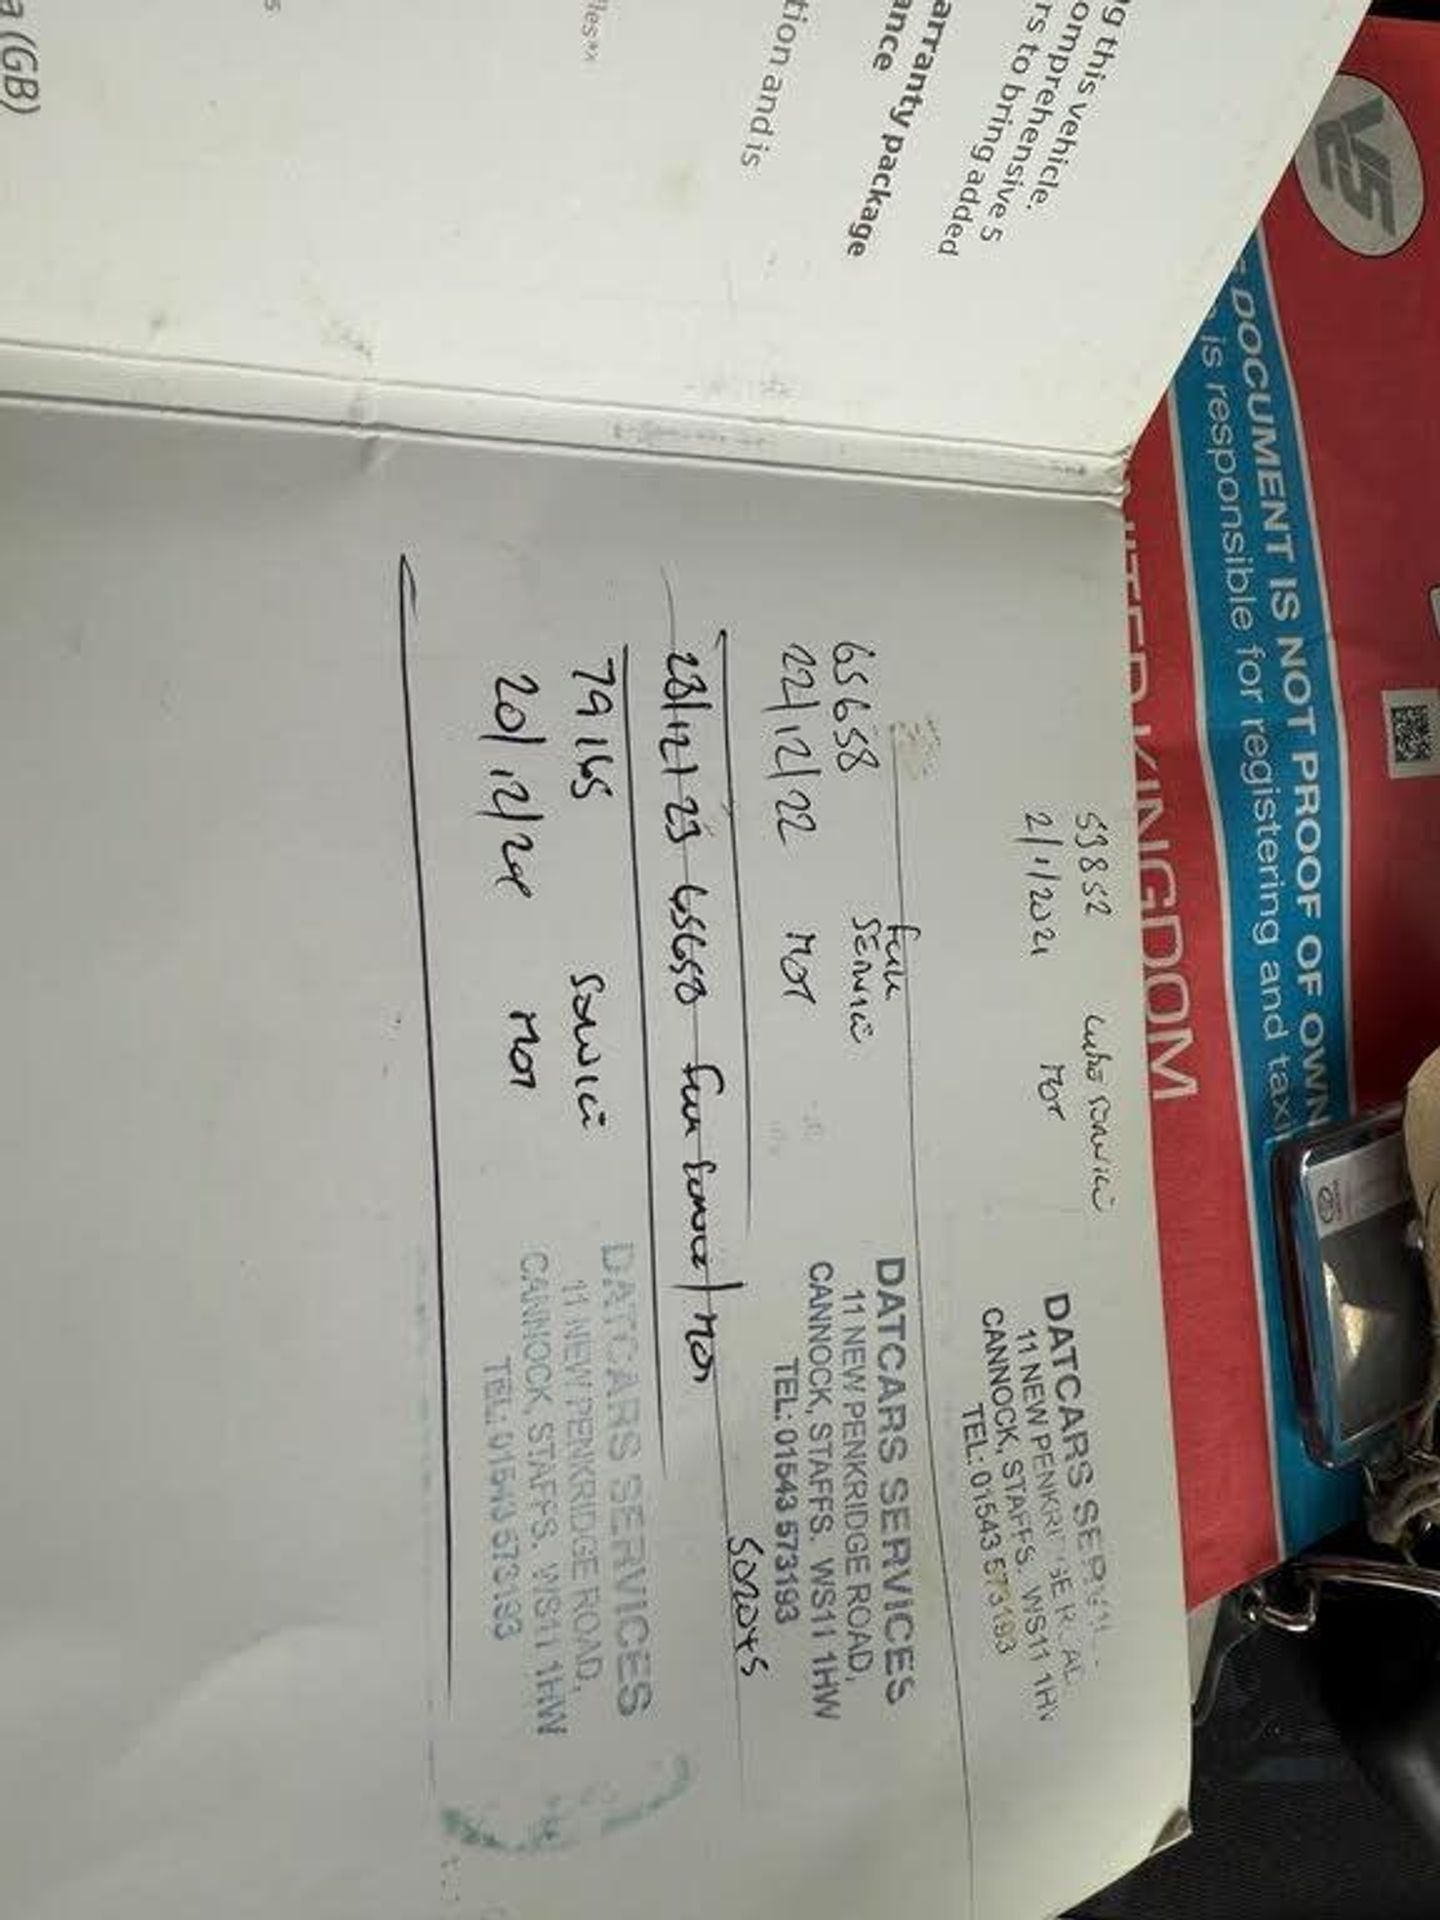 ng this vehicle.
omprehensive 5
rs to bring added
arranty package
ance
tion and is
a (GB)
V5C
DOCUMENT IS NOT PROOF OF OWN
is responsible for registering and taxi
UNITED KINGDOM
59852
2/1/2021 MOT
DATCARS SERVI
11 NEW PENKRI GE R AD
CANNOCK, STAFFS. WS11 1HW
TEL: 01543 573193
FULL
65658 SERVICE
22/12/22 MOT
DATCARS SERVICES
11 NEW PENKRIDGE ROAD,
CANNOCK, STAFFS. WS11 1HW
TEL: 01543 573193
23/12/23 65658 Full Service / MOT
79165 Service
20/12/24 MOT
DATCARS SERVICES
11 NEW PENKRIDGE ROAD,
CANNOCK, STAFFS. WS11 1HW
TEL: 01543 573193